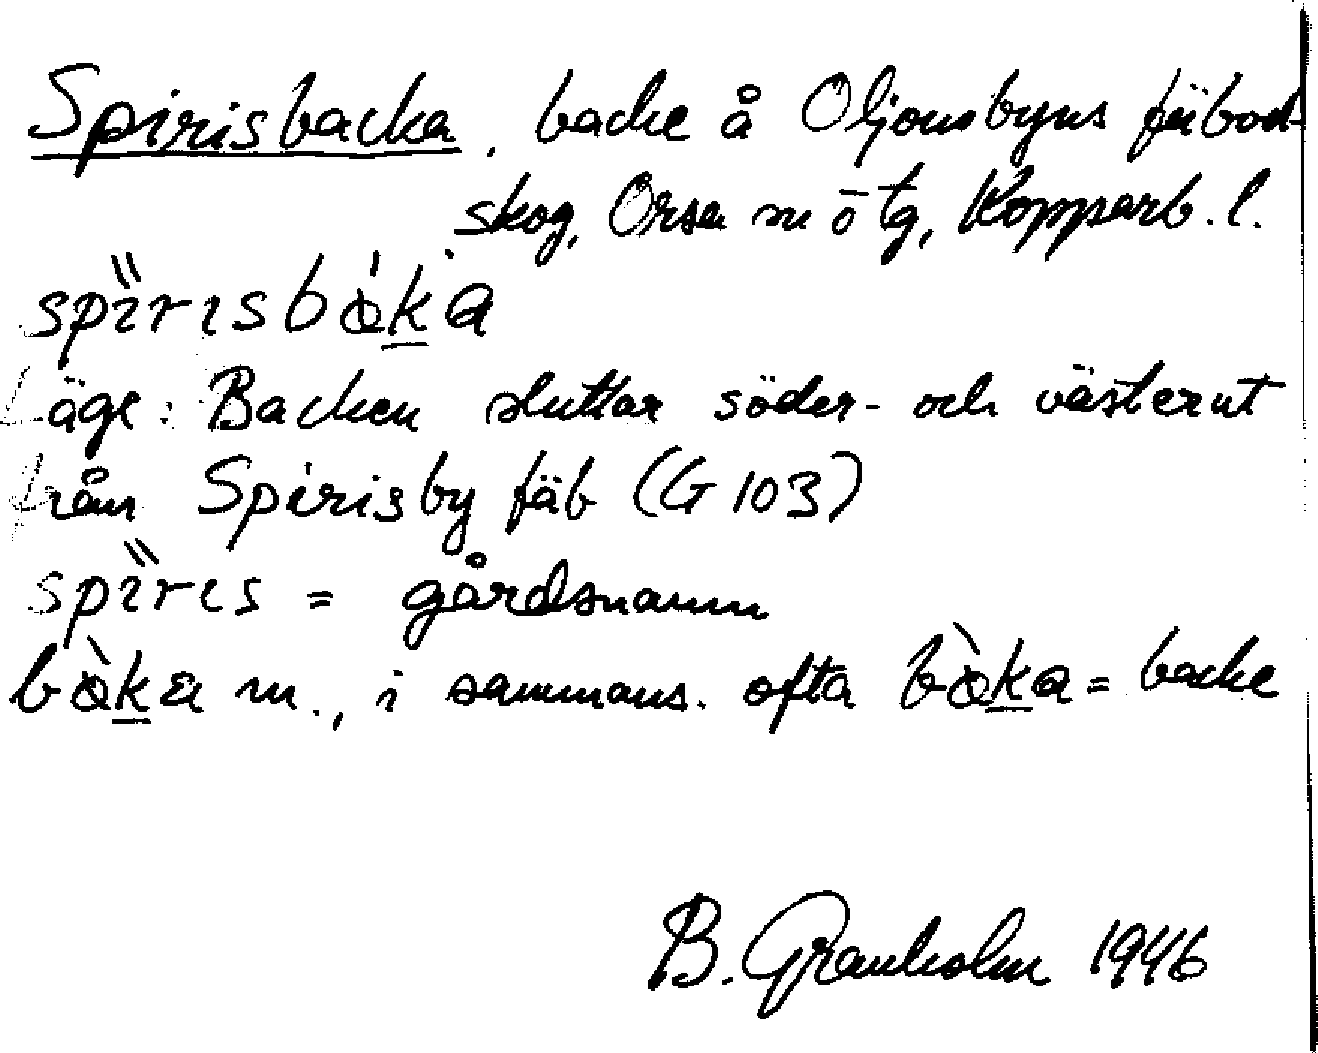 Spirisbacka, backe å Oljonsbyns fäbod-
skog, Orsa m ö tg, Kopparb. l.
spı̏rısbàk̲a
Läge: Backen sluttar söder- och västerut
från Spirisby fäb (G 103)
spı̏rıs = gårdsnamn
bàk̲a m., i sammans. ofta bàk̲a = backe
B. Granholm 1946